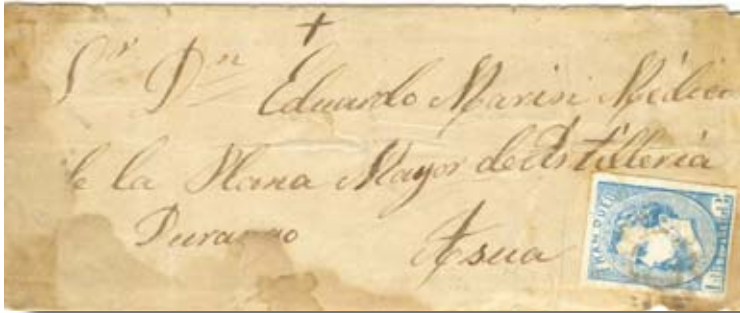 Sr Dn Eduardo Marisi Médico
de la Plana Mayor de Artilleria
Durango Asua